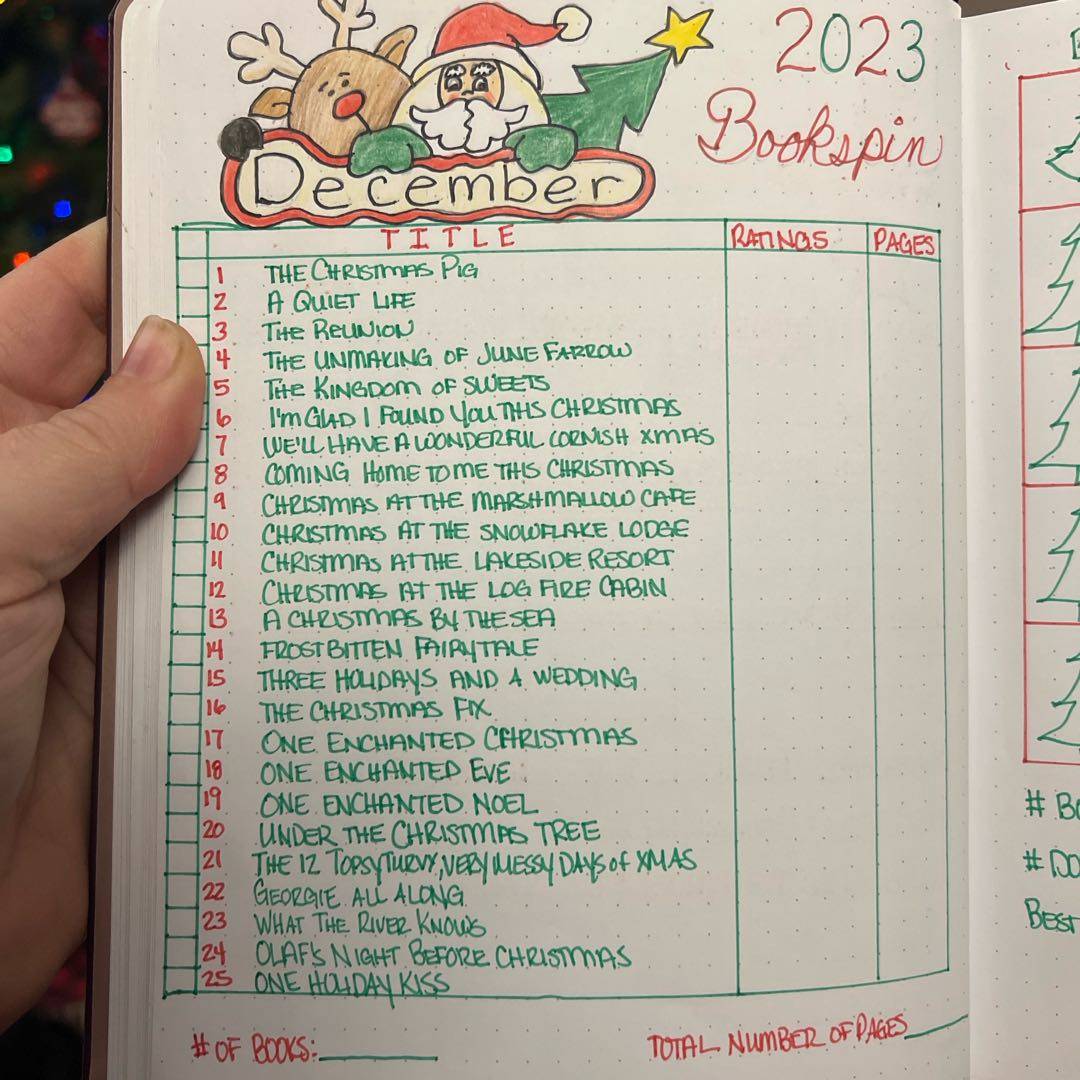 2023
Bookspin
December
TITLE RATINGS PAGES
1 THE CHRISTMAS PIG
2 A QUIET LIFE
3 THE REUNION
4 THE UNMAKING OF JUNE FARROW
5 THE KINGDOM OF SWEETS
6 I'M GLAD I FOUND YOU THIS CHRISTMAS
7 WE'LL HAVE A WONDERFUL CORNISH XMAS
8 COMING HOME TO ME THIS CHRISTMAS
9 CHRISTMAS AT THE MARSHMALLOW CAFE
10 CHRISTMAS AT THE SNOWFLAKE LODGE
11 CHRISTMAS AT THE LAKESIDE RESORT
12 CHRISTMAS AT THE LOG FIRE CABIN
13 A CHRISTMAS BY THE SEA
14 FROSTBITTEN FAIRYTALE
15 THREE HOLIDAYS AND A WEDDING
16 THE CHRISTMAS FIX
17 ONE ENCHANTED CHRISTMAS
18 ONE ENCHANTED EVE
19 ONE ENCHANTED NOEL
20 UNDER THE CHRISTMAS TREE
21 THE 12 TOPSY TURVY, VERY MESSY DAYS OF XMAS
22 GEORGIE ALL ALONG
23 WHAT THE RIVER KNOWS
24 OLAF'S NIGHT BEFORE CHRISTMAS
25 ONE HOLIDAY KISS
# OF BOOKS:
TOTAL NUMBER OF PAGES
#
#
BEST